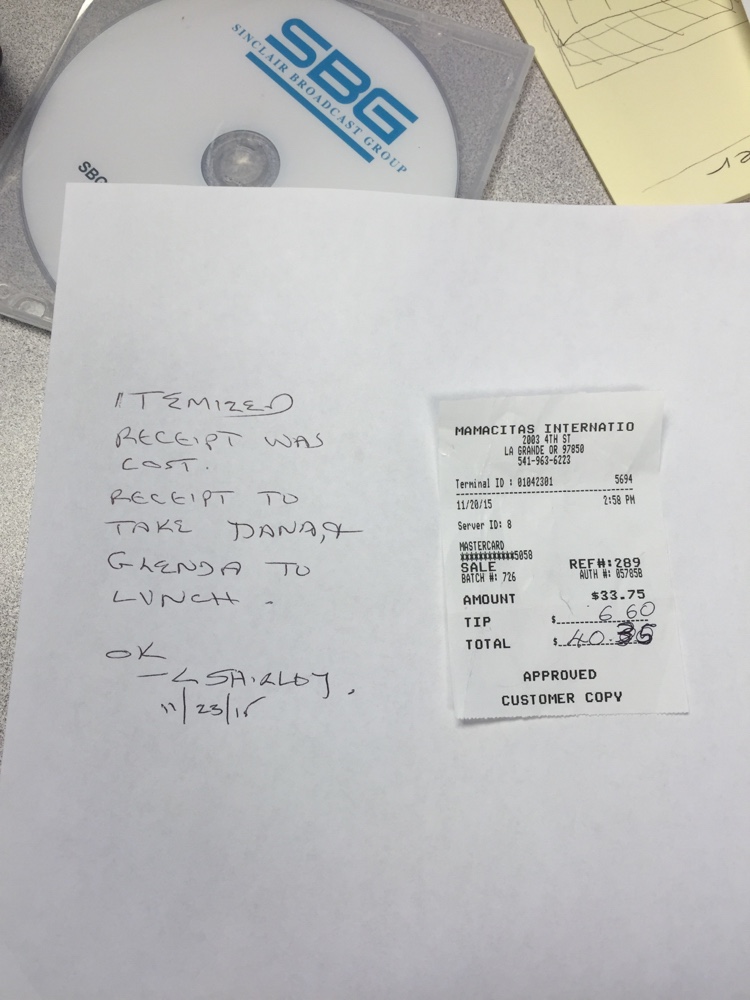 SBG
SINCLAIR BROADCAST GROUP
SBG
ITEMIZED
RECEIPT WAS
COST.
RECEIPT TO
TAKE DANA, &
GLENDA TO
LUNCH.
OK
11/23/15
MAMACITAS INTERNATIO
2003 4TH ST
LA GRANDE OR 97850
541-963-6223
Terminal ID : 01042301 5694
11/20/15 2:58 PM
Server ID: 8
MASTERCARD
************5058
SALE REF#:289
BATCH #: 726 AUTH #: 057858
AMOUNT $33.75
TIP $ 6.60
TOTAL $ 40.35
APPROVED
CUSTOMER COPY